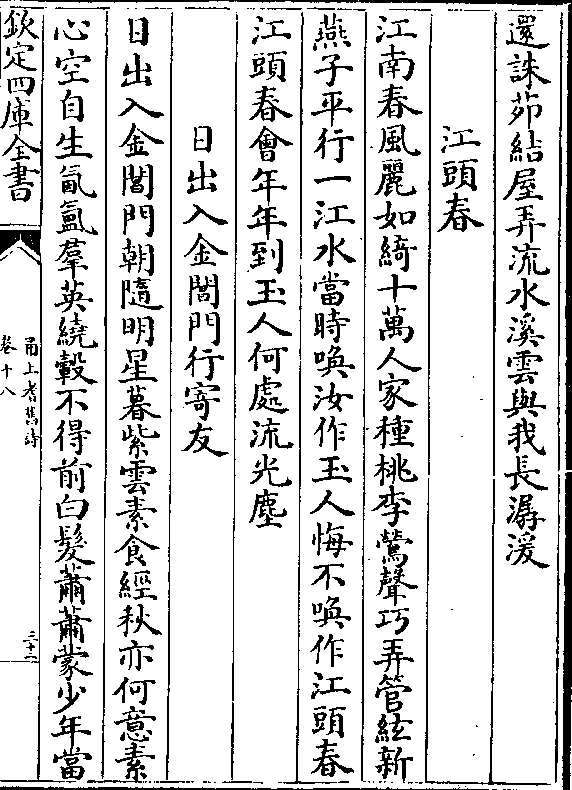 還誅茆結屋弄流水溪雲與我長潺湲
江頭春
江南春風麗如綺十萬人家種桃李鶯聲巧弄管絃新
燕子平行一江水當時喚汝作玉人悔不喚作江頭春
江頭春會年年到玉人何處流光塵
日出入金閶門行寄友
日出入金閶門朝隨明星暮紫雲素食經秋亦何意素
心空自生氤氳羣英繞轂不得前白髮蕭蕭蒙少年當
欽定四庫全書
甬上耆舊詩
卷十八
三十二